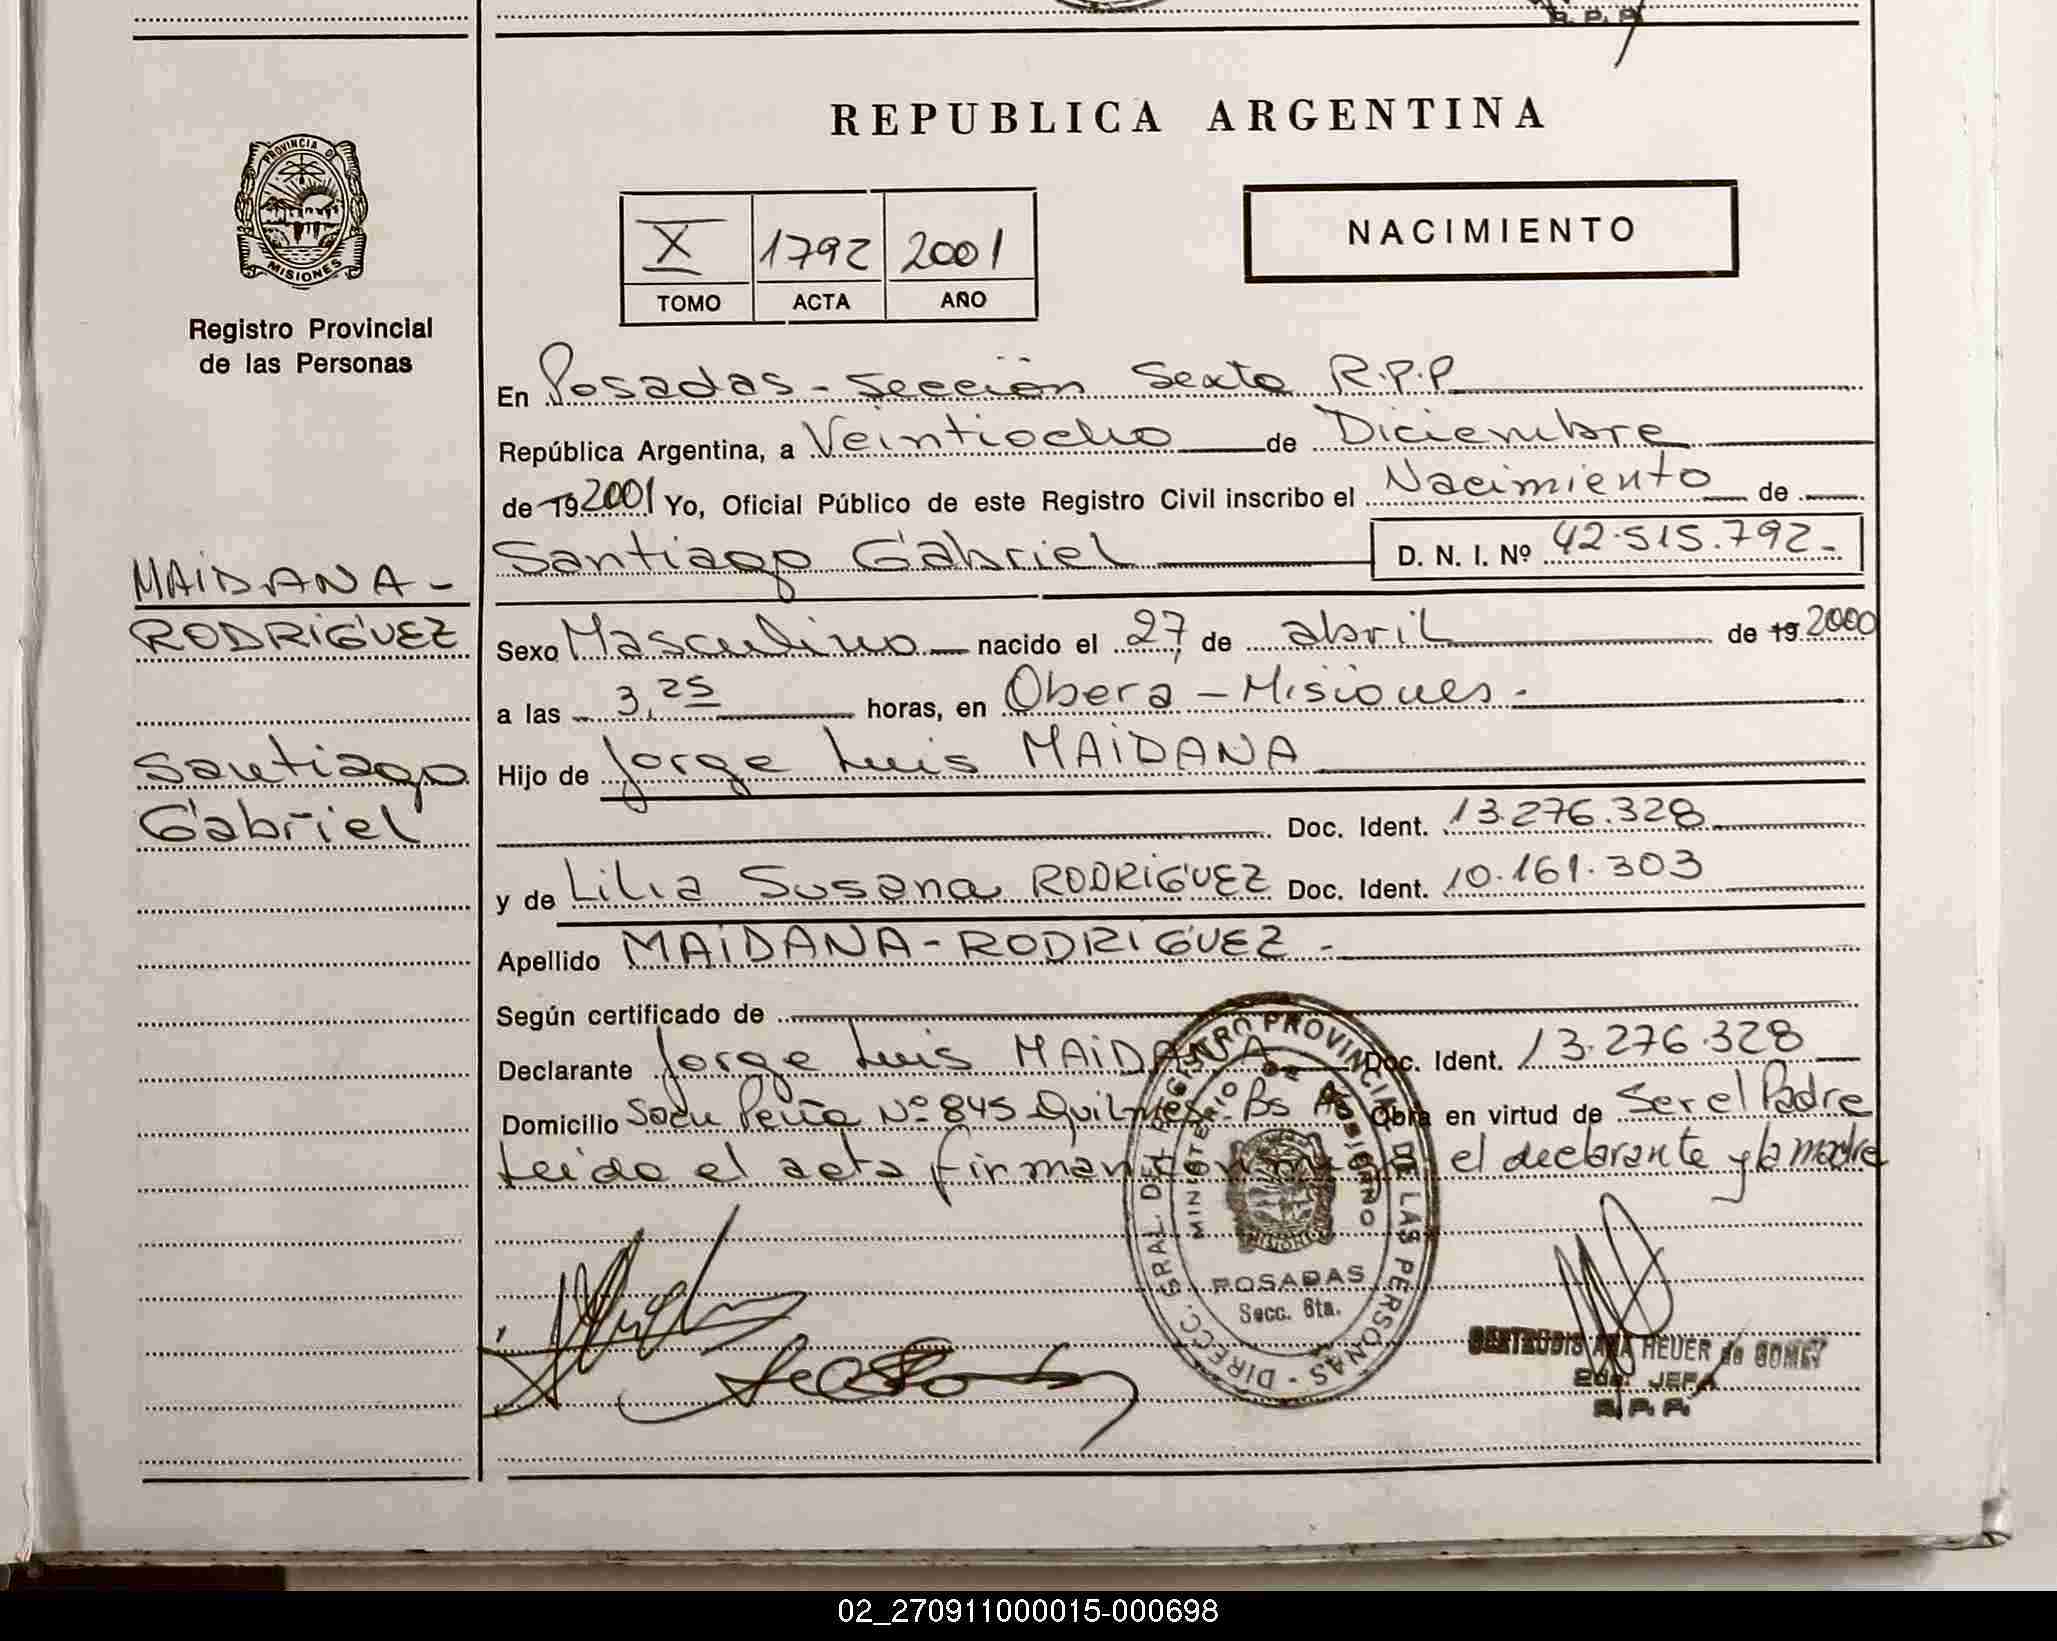 R.P.P.
REPUBLICA ARGENTINA
PROVINCIA DE
MISIONES
Registro Provincial
de las Personas
X 1792 2001
TOMO ACTA AÑO
NACIMIENTO
En Posadas - Sección Sexta R.P.P
República Argentina, a Veintiocho de Diciembre
de 19 2001 Yo, Oficial Público de este Registro Civil inscribo el Nacimiento de
Santiago Gabriel D. N. I. Nº 42.515.792-
MAIDANA -
RODRIGUEZ
Santiago
Gabriel
Sexo Masculino nacido el 27 de abril de 19 2000
a las 3,25 horas, en Obera - Misiones.
Hijo de Jorge Luis MAIDANA
Doc. Ident. 13.276.328
y de Lilia Susana RODRIGUEZ Doc. Ident. 10.161.303
Apellido MAIDANA - RODRIGUEZ -
Según certificado de
Declarante Jorge Luis MAIDANA Doc. Ident. 13.276.328
Domicilio Saen Peña Nº 845 Quilmes - Bs As Obra en virtud de Ser el Padre
Leida el acta firman el declarante y la madre
DIRECC. GRAL. DEL REGISTRO PROVINCIAL DE LAS PERSONAS -
MINISTERIO DE GOBIERNO
MISIONES
POSADAS
Secc. 6ta.
GERTRUDIS ANA HEUER de GOMEZ
2da. JEFA
R. P. P.
02_270911000015-000698